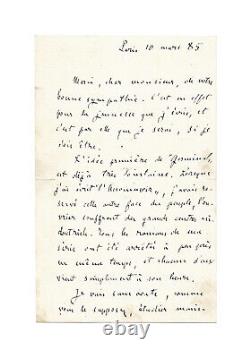 Paris 10 mars 85
Merci, cher monsieur, de votre
bonne sympathie. C'est en effet
pour la jeunesse que j'écris, et
c'est par elle que je serai, si je
dois être.
L'idée première de "Germinal"
est déjà très lointaine. Lorsque
j'ai écrit l'"Assommoir", j'avais réser-
vé cette autre face du peuple, l'ou-
vrier souffrant des grands centres in-
dustriels. Tous les romans de ma
série ont été arrêtés à peu près
en même temps, et chacun d'eux
vient simplement à son heure.
Je vais sans doute, comme
vous le supposez, étudier main-